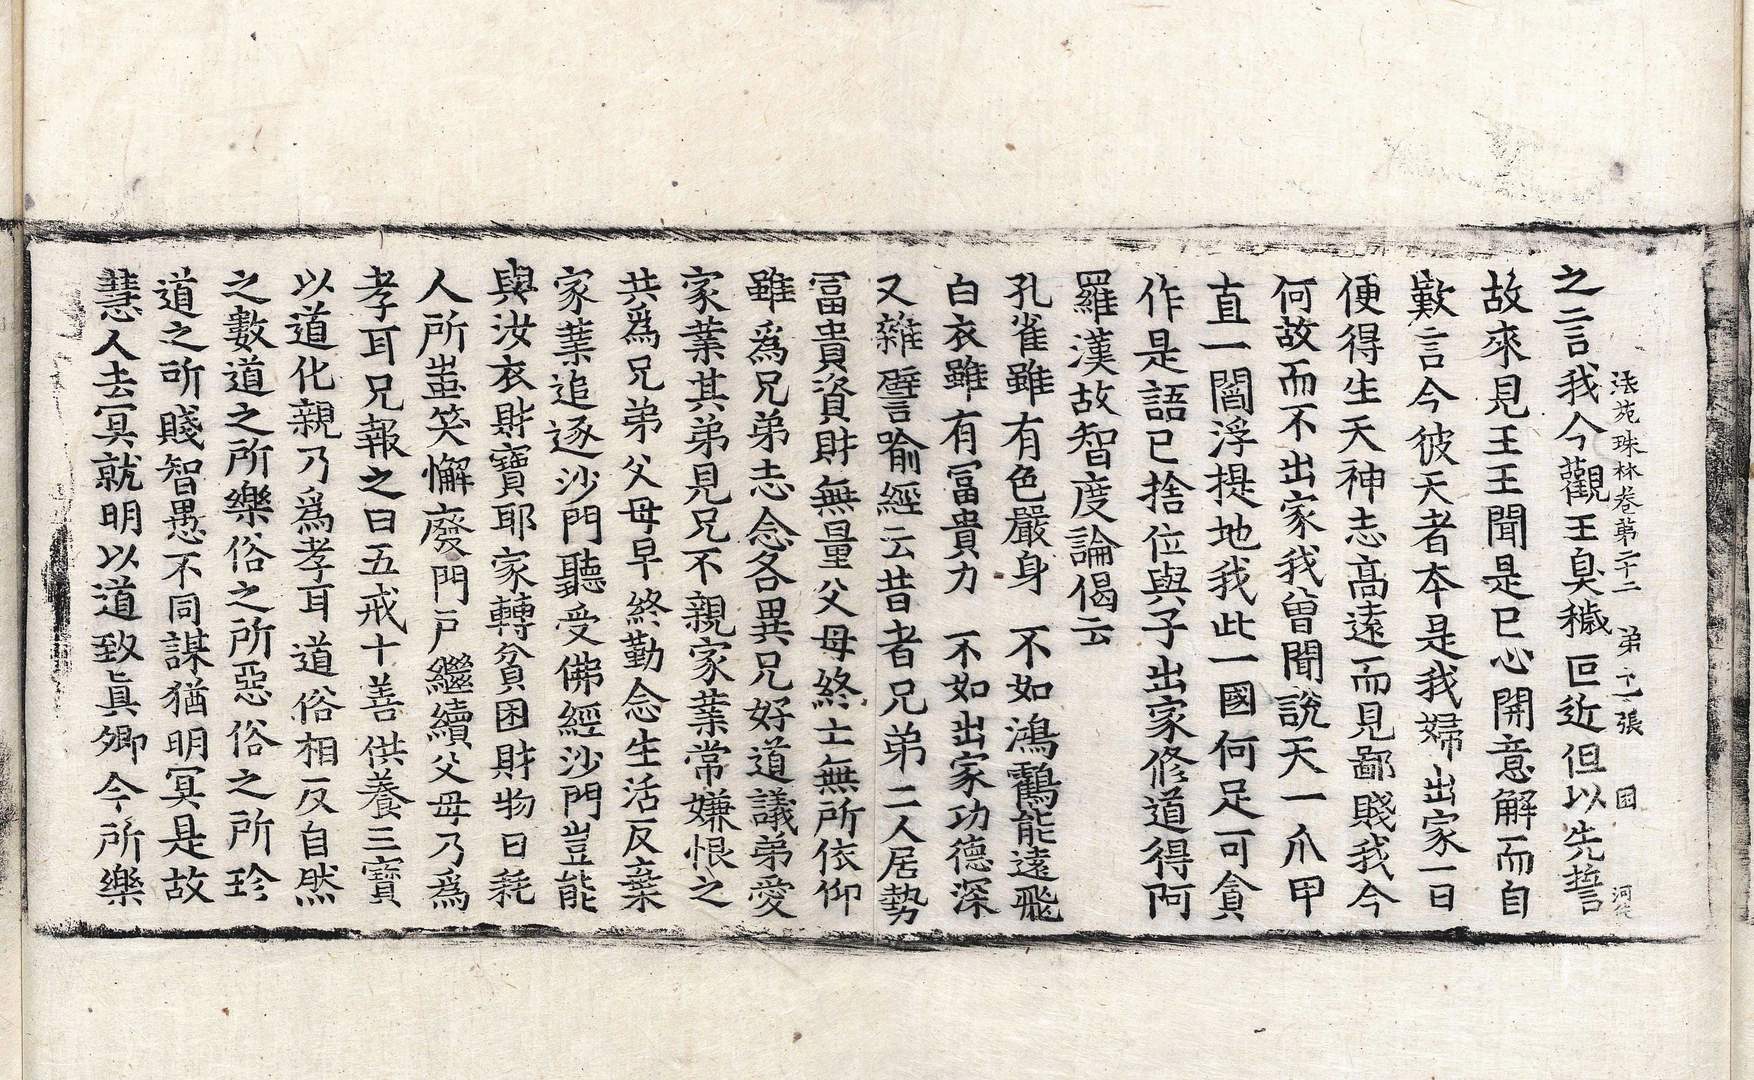 法苑珠林卷第二十二 第十二張 困
之言我今觀王臭穢叵近但以先誓
故來見王王聞是已心開意解而自
歎言今彼天者本是我婦出家一日
便得生天神志高遠而見鄙賤我今
何故而不出家我曾聞說天一爪甲
直一閻浮提地我此一國何足可貪
作是語已捨位與子出家修道得阿
羅漢故智度論偈云
孔雀雖有色嚴身 不如鴻鶴能遠飛
白衣雖有冨貴力 不如出家功德深
又雜譬喻經云昔者兄弟二人居勢
冨貴資財無量父母終亡無所依仰
雖爲兄弟志念各異兄好道議弟愛
家業其弟見兄不親家業常嫌恨之
共爲兄弟父母早終勤念生活反棄
家業追逐沙門聽受佛經沙門豈能
與汝衣財寶耶家轉貧困財物日耗
人所蚩笑懈廢門戶繼續父母乃爲
孝耳兄報之曰五戒十善供養三寶
以道化親乃爲孝耳道俗相反自然
之數道之所樂俗之所惡俗之所珍
道之所賤智愚不同謀猶明冥是故
慧人去冥就明以道致眞卿今所樂